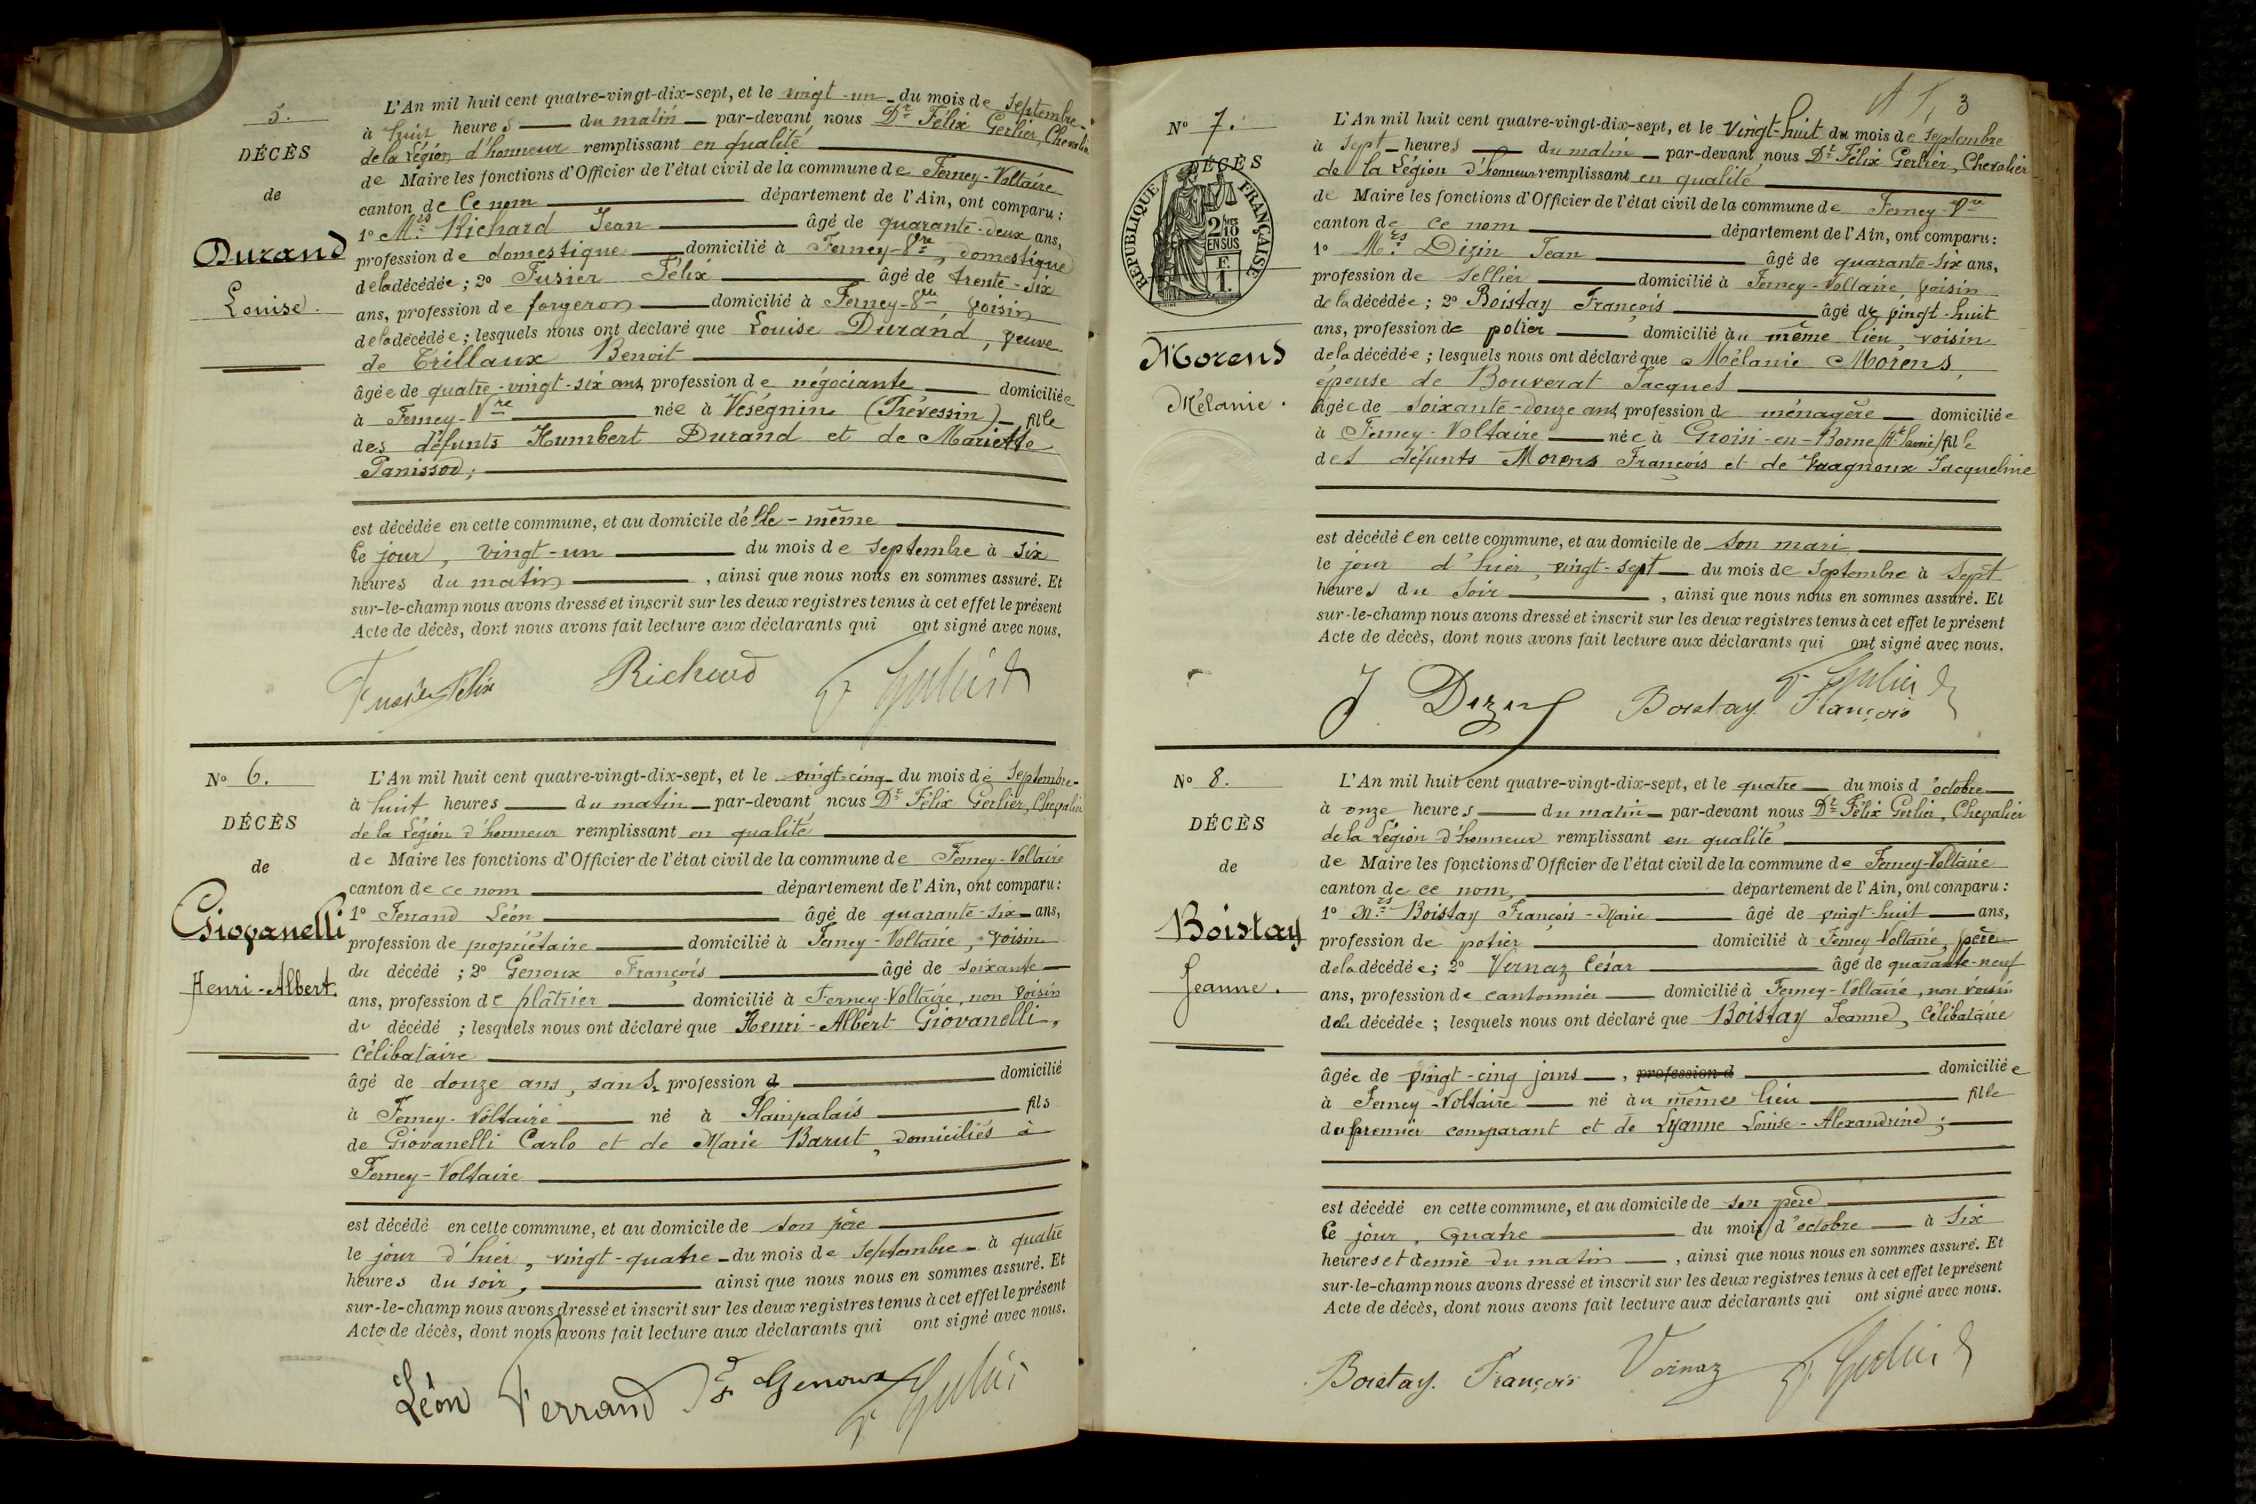 5.
DÉCÈS
de
Durand
Louise.
L'An mil huit cent quatre-vingt-dix-sept, et le vingt-un du mois de Septembre
à huit heures du matin par-devant nous Dr Félix Gerlier, Chevalier
de la Légion d'honneur remplissant en qualité
de Maire les fonctions d'Officier de l'état civil de la commune de Ferney-Voltaire
canton de Ce nom département de l'Ain, ont comparu :
1º Mrs Richard Jean âgé de quarante-deux ans,
profession de domestique domicilié à Ferney-Vre, domestique
de la décédée ; 2º Fusier Félix âgé de trente-six
ans, profession de forgeron domicilié à Ferney-Vre voisin
de la décédée ; lesquels nous ont déclaré que Louise Durand, veuve
de Trillaux Benoit
âgée de quatre-vingt-six ans, profession de négociante domiciliée
à Ferney-Vre née à Veségnin (Prévessin) fille
des défunts Humbert Durand et de Mariette
Panissod ;
est décédée en cette commune, et au domicile d'elle-même
Ce jour, vingt-un du mois de Septembre à six
heures du matin , ainsi que nous nous en sommes assuré. Et
sur-le-champ nous avons dressé et inscrit sur les deux registres tenus à cet effet le présent
Acte de décès, dont nous avons fait lecture aux déclarants qui ont signé avec nous.
Fusier Félix Richard F Gerlier
Nº 6.
DÉCÈS
de
Giovanelli
Henri-Albert.
L'An mil huit cent quatre-vingt-dix-sept, et le vingt-cinq du mois de Septembre
à huit heures du matin par-devant nous Dr Félix Gerlier, Chevalier
de la Légion d'honneur remplissant en qualité
de Maire les fonctions d'Officier de l'état civil de la commune de Ferney-Voltaire
canton de ce nom département de l'Ain, ont comparu :
1º Ferrand Léon âgé de quarante-six ans,
profession de propriétaire domicilié à Ferney-Voltaire, voisin
du décédé ; 2º Genoux François âgé de soixante
ans, profession de plâtrier domicilié à Ferney-Voltaire, non voisin
du décédé ; lesquels nous ont déclaré que Henri-Albert Giovanelli,
Célibataire
âgé de douze ans, sans profession d domicilié
à Ferney-Voltaire né à Plainpalais fils
de Giovanelli Carlo et de Marie Barut, domiciliés à
Ferney-Voltaire
est décédé en cette commune, et au domicile de son père
le jour d'hier, vingt-quatre du mois de Septembre à quatre
heures du soir, ainsi que nous nous en sommes assuré. Et
sur-le-champ nous avons dressé et inscrit sur les deux registres tenus à cet effet le présent
Acte de décès, dont nous avons fait lecture aux déclarants qui ont signé avec nous.
Léon Ferrand F Genoux F Gerlier
3
Nº 7.
DÉCÈS
RÉPUBLIQUE FRANÇAISE
2/10
EN SUS
F.
1.
Morens
Mélanie.
L'An mil huit cent quatre-vingt-dix-sept, et le Vingt-huit du mois de Septembre
à sept heures du matin par-devant nous Dr Félix Gerlier, Chevalier
de la Légion d'honneur remplissant en qualité
de Maire les fonctions d'Officier de l'état civil de la commune de Ferney-Vre
canton de ce nom département de l'Ain, ont comparu :
1º Mrs Dizin Jean âgé de quarante-six ans,
profession de sellier domicilié à Ferney-Voltaire voisin
de la décédée ; 2º Boistay François âgé de vingt-huit
ans, profession de potier domicilié au même lieu, voisin
de la décédée ; lesquels nous ont déclaré que Mélanie Morens,
épouse de Bouverat Jacques
âgée de soixante-douze ans, profession de ménagère domiciliée
à Ferney-Voltaire née à Groisi-en-Borne (Hte Savoie) fille
des défunts Morens François et de Jacqueline
est décédée en cette commune, et au domicile de son mari
le jour d'hier, vingt-sept du mois de Septembre à sept
heures du soir , ainsi que nous nous en sommes assuré. Et
sur-le-champ nous avons dressé et inscrit sur les deux registres tenus à cet effet le présent
Acte de décès, dont nous avons fait lecture aux déclarants qui ont signé avec nous.
J Dizin Boistay François F Gerlier
Nº 8.
DÉCÈS
de
Boistay
Jeanne.
L'An mil huit cent quatre-vingt-dix-sept, et le quatre du mois d'octobre
à onze heures du matin par-devant nous Dr Félix Gerlier, Chevalier
de la Légion d'honneur remplissant en qualité
de Maire les fonctions d'Officier de l'état civil de la commune de Ferney-Voltaire
canton de ce nom, département de l'Ain, ont comparu :
1º Mrs Boistay François-Marie âgé de vingt-huit ans,
profession de potier domicilié à Ferney-Voltaire, père
de la décédée ; 2º Vernaz César âgé de quarante-neuf
ans, profession de cantonnier domicilié à Ferney-Voltaire, non voisin
de la décédée ; lesquels nous ont déclaré que Boistay Jeanne, Célibataire
âgée de vingt-cinq jours , profession d domiciliée
à Ferney-Voltaire né au même lieu fille
du premier comparant et de Lyanne Louise-Alexandrine ;
est décédé en cette commune, et au domicile de son père
Ce jour, Quatre du mois d'octobre à six
heures et demie du matin , ainsi que nous nous en sommes assuré. Et
sur-le-champ nous avons dressé et inscrit sur les deux registres tenus à cet effet le présent
Acte de décès, dont nous avons fait lecture aux déclarants qui ont signé avec nous.
Boistay François Vernaz F Gerlier